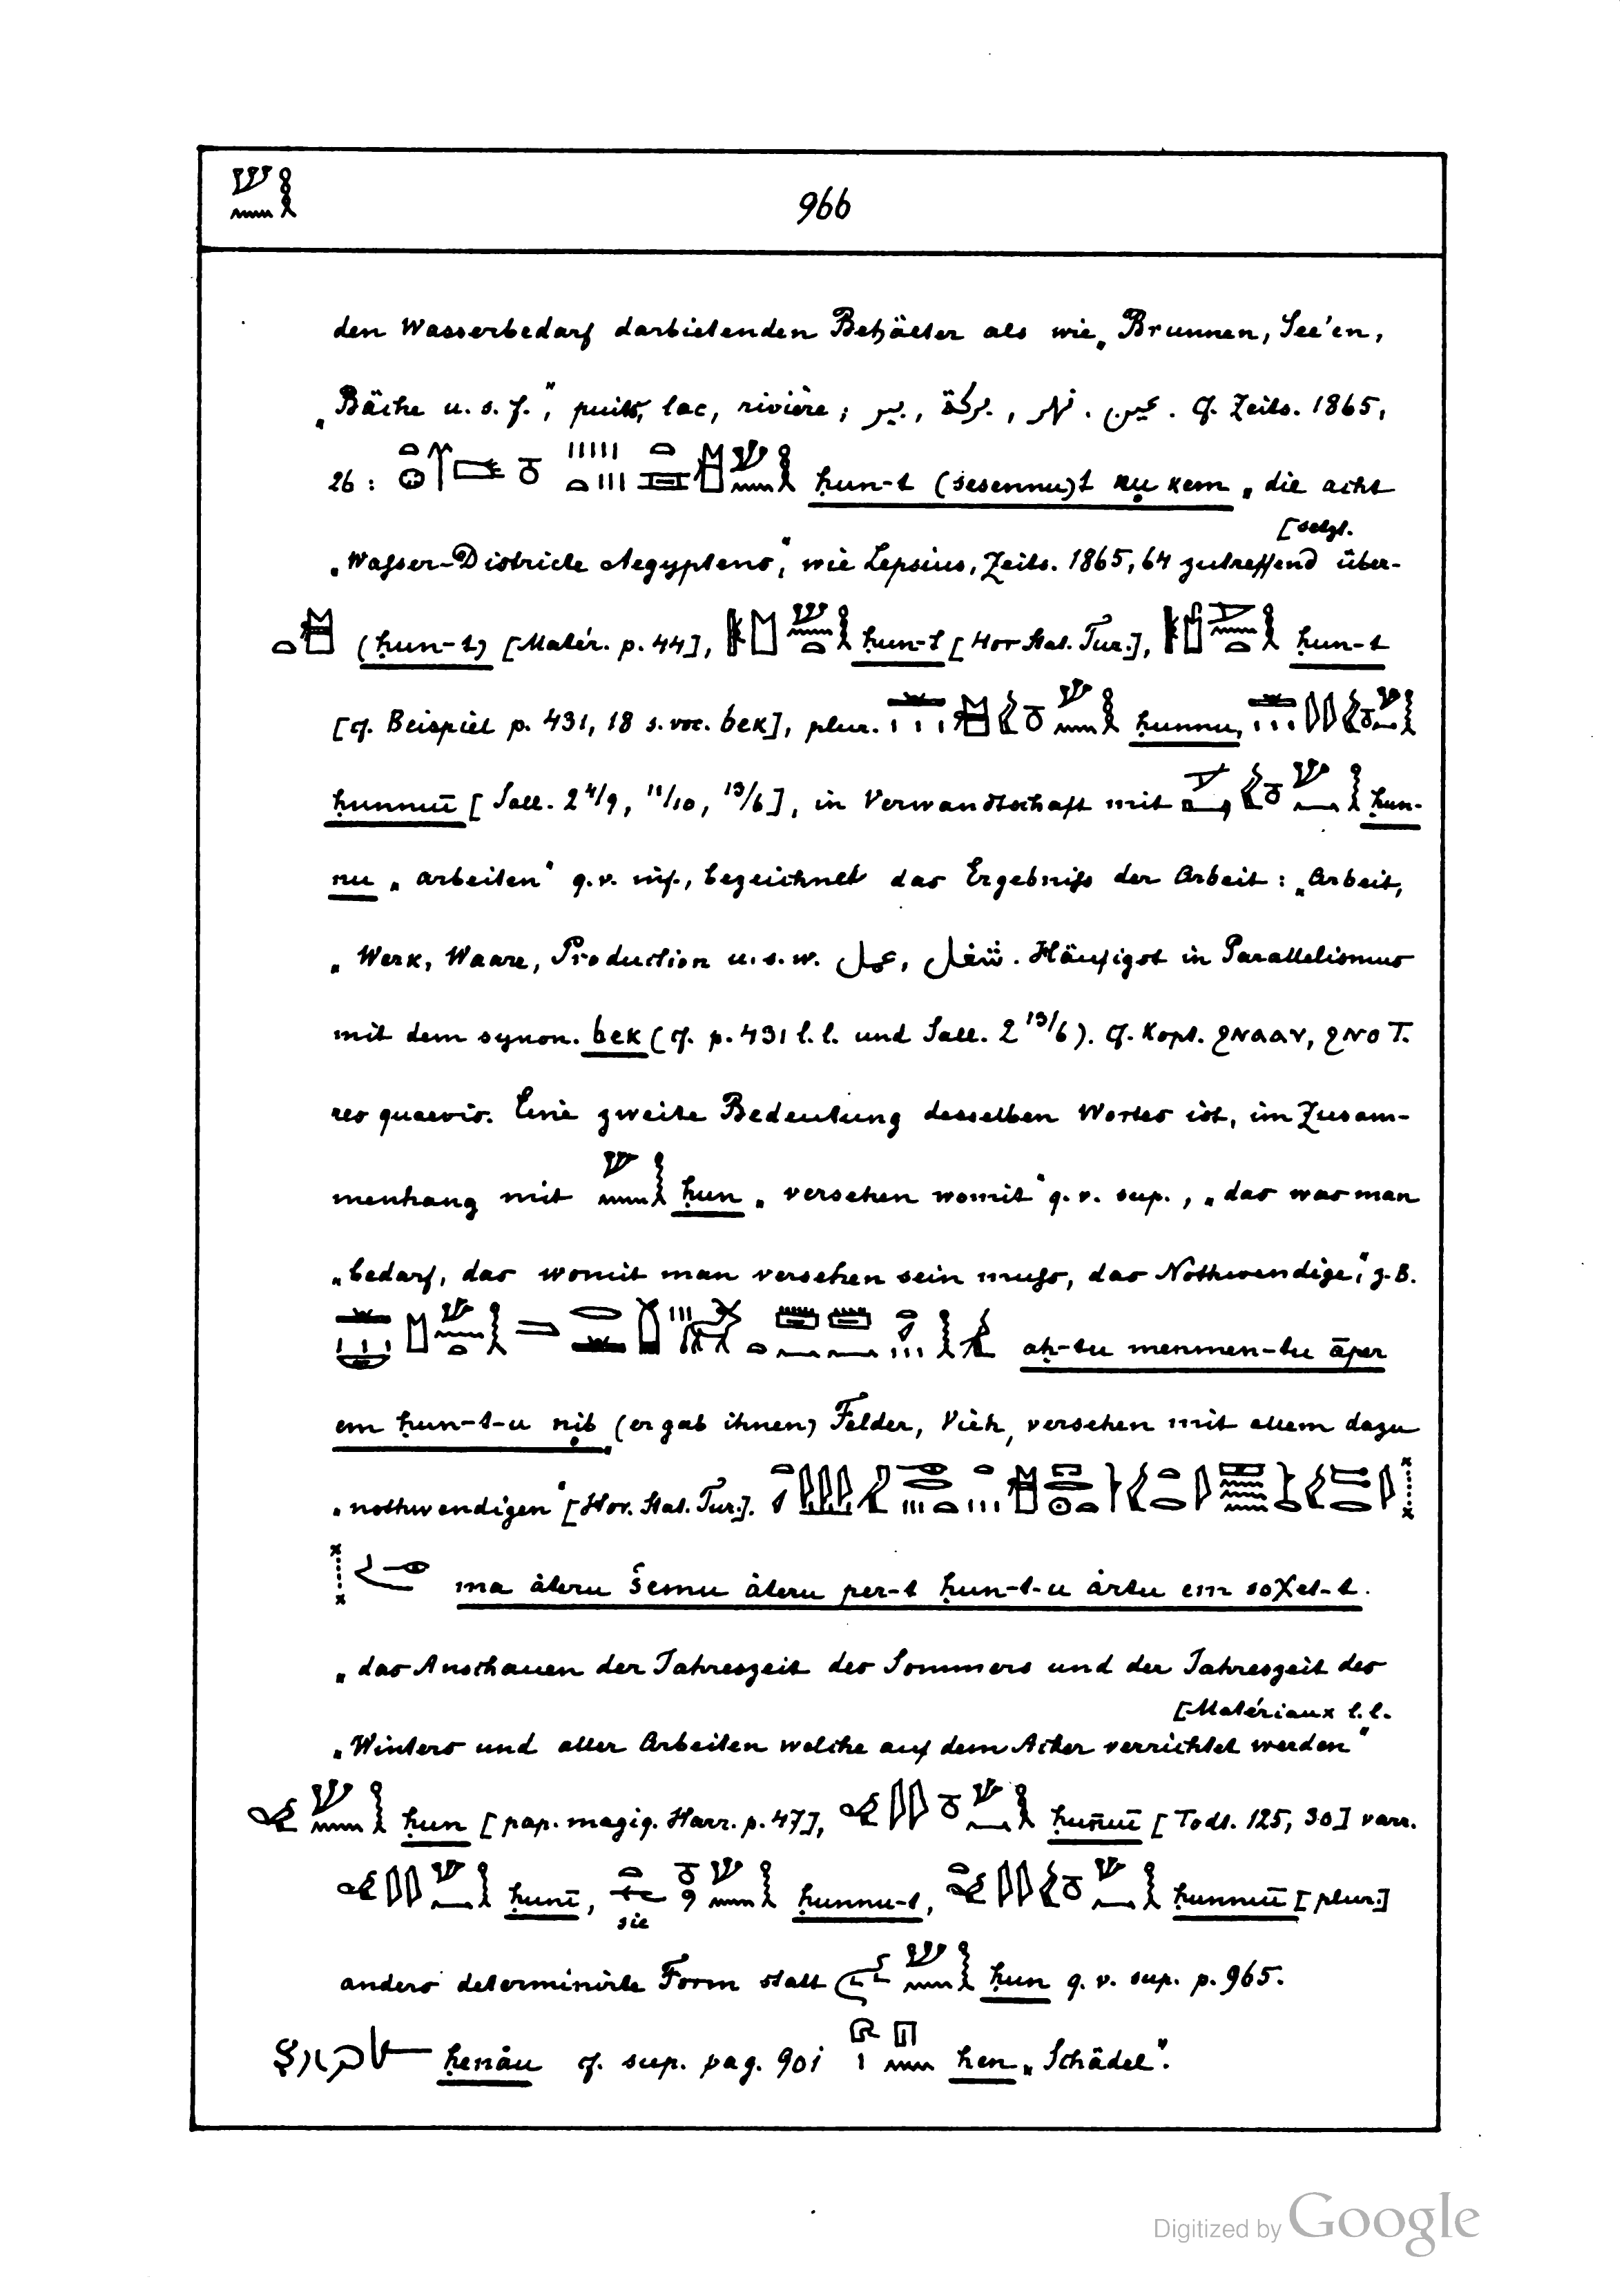 966
den Wasserbedarf darbietenden Behälter als wie „Brunnen, See'en,
„Bäche u. s. f.“, puits, lac, rivière; بير , بركة , نهر . عين . cf. Zeits. 1865,
26: ḥun-t (sesennu)t nu kem „die acht
[setzt.
„Wasser-Districte Aegyptens“, wie Lepsius, Zeits. 1865, 64 zutreffend über-
(ḥun-t) [Matér. p. 44], ḥun-t [Hor Stat. Tur.], ḥun-t
[cf. Beispiel p. 431, 18 s. voc. bek], plur. ḥunnu,
ḥunnuī [Sall. 2 4/9, 11/10, 13/6], in Verwandtschaft mit ḥun-
nu „arbeiten“ q. v. inf., bezeichnet das Ergebniss der Arbeit: „Arbeit,
„Werk, Waare, Production u. s. w. عمل, شغل. Häufigst in Parallelismus
mit dem synon. bek (cf. p. 431 l. l. und Sall. 2 13/6). cf. Kopt. ϩⲛⲁⲁⲩ, ϩⲛⲟ T.
res quaevis. Eine zweite Bedeutung desselben Wortes ist, im Zusam-
menhang mit ḥun „versehen womit“ q. v. sup., „das was man
„bedarf, das womit man versehen sein muss, das Nothwendige“, z. B.
aḥ-tu menmen-tu āper
em ḥun-t-u nib (er gab ihnen) Felder, Vieh, versehen mit allem dazu
„nothwendigen“ [Hor. Stat. Tur.].
ma återu šemu återu per-t ḥun-t-u årtu em soχet-t.
„das Anschauen der Jahreszeit des Sommers und der Jahreszeit des
[Matériaux l. l.
„Winters und aller Arbeiten welche auf dem Acker verrichtet werden“
ḥun [pap. magiq. Harr. p. 47], ḥun̄uī [Todt. 125, 30] varr.
ḥunī, ḥunnu-t, ḥunnuī [plur.]
sic
anders determinirte Form statt ḥun q. v. sup. p. 965.
ḥenåu cf. sup. pag. 901 hen „Schädel“.
Digitized by Google